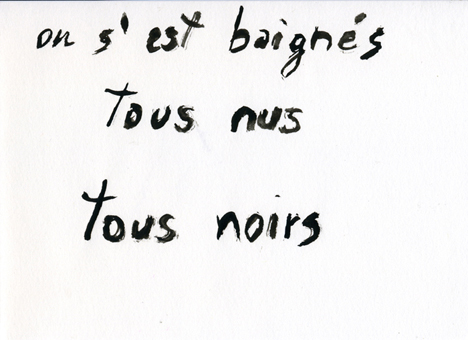 on s'est baignés
tous nus
tous noirs